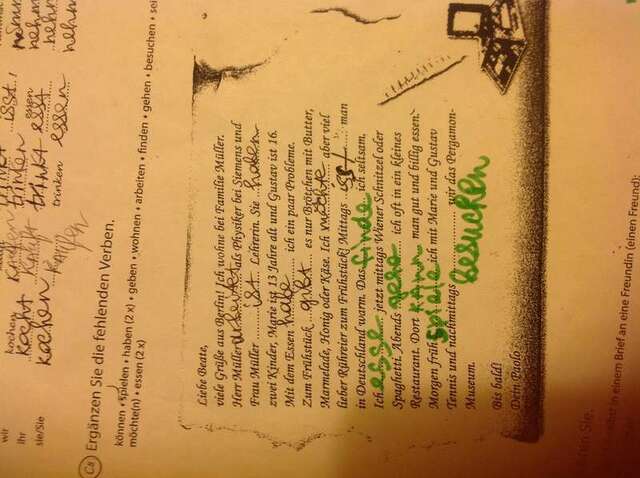 wir kochen trinken isst!
ihr kocht kauft trinkt esst
sie/Sie kochen kaufen trinken essen
C8 Ergänzen Sie die fehlenden Verben.
können • spielen • haben (2 x) • geben • wohnen • arbeiten • finden • gehen • besuchen • sei
möchte(n) • essen (2 x)
Liebe Beate,
viele Grüße aus Berlin! Ich wohne bei Familie Müller.
Herr Müller arbeitet als Physiker bei Siemens und
Frau Müller ist Lehrerin. Sie haben
zwei Kinder, Marie ist 13 Jahre alt und Gustav ist 16.
Mit dem Essen habe ich ein paar Probleme.
Zum Frühstück gibt es nur Brötchen mit Butter,
Marmelade, Honig oder Käse. Ich möchte aber viel
lieber Rühreier zum Frühstück! Mittags isst man
in Deutschland warm. Das finde ich seltsam.
Ich esse jetzt mittags Wiener Schnitzel oder
Spaghetti. Abends gehe ich oft in ein kleines
Restaurant. Dort kann man gut und billig essen.
Morgen früh spiele ich mit Marie und Gustav
Tennis und nachmittags besuchen wir das Pergamon-
Museum.
Bis bald!
Dein Paolo
in einem Brief an eine Freundin (einen Freund):